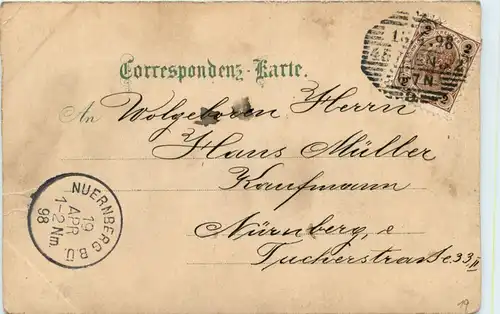 2 2
98
7N
Correspondenz-Karte.
An Wolgeboren Herrn
Hans Müller
Kaufmann
Nürnberg
Tucherstrasse 33 II
NUERNBERG B.Ü.
19
APR
1-2 Nm.
98
19